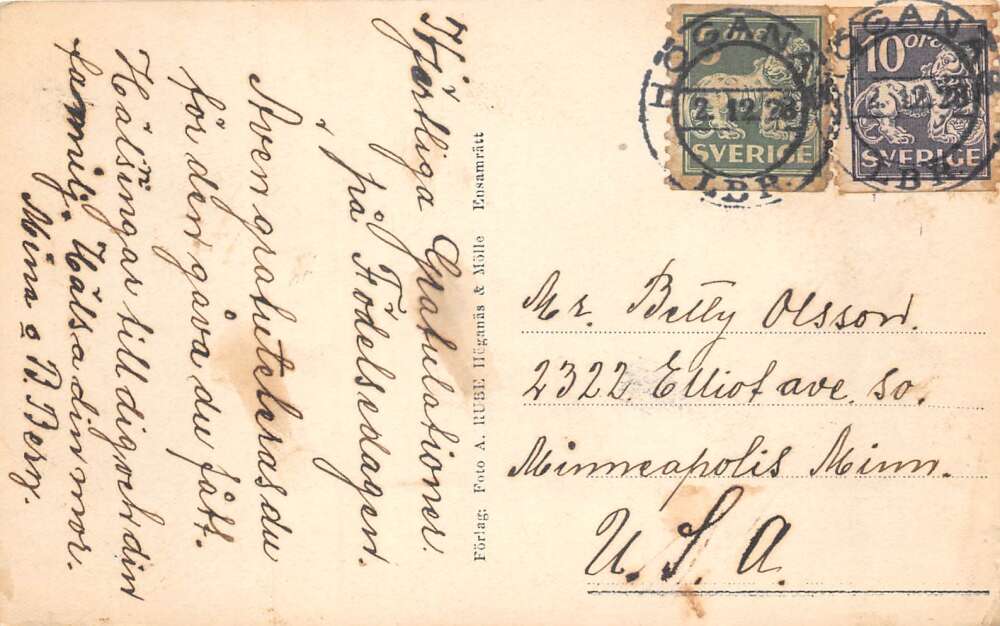 Hjertliga Gratulationer
på Födelsedagen.
Även gratuteleras du
för den gåva du fått.
Hälsingar till dig och din
familj. Hälsa din mor.
Mina o B. Berg.
Förlag: Foto A. RUBE Höganäs & Mölle Ensamrätt
ÖRE SVERIGE
10 ÖRE SVERIGE
HÖGANÄS
2.12.28
LBR.
HÖGANÄS
2.12.28
LBR.
Mr. Betty Olsson.
2322. Elliot ave. so.
Minneapolis Minn.
U. S. A.